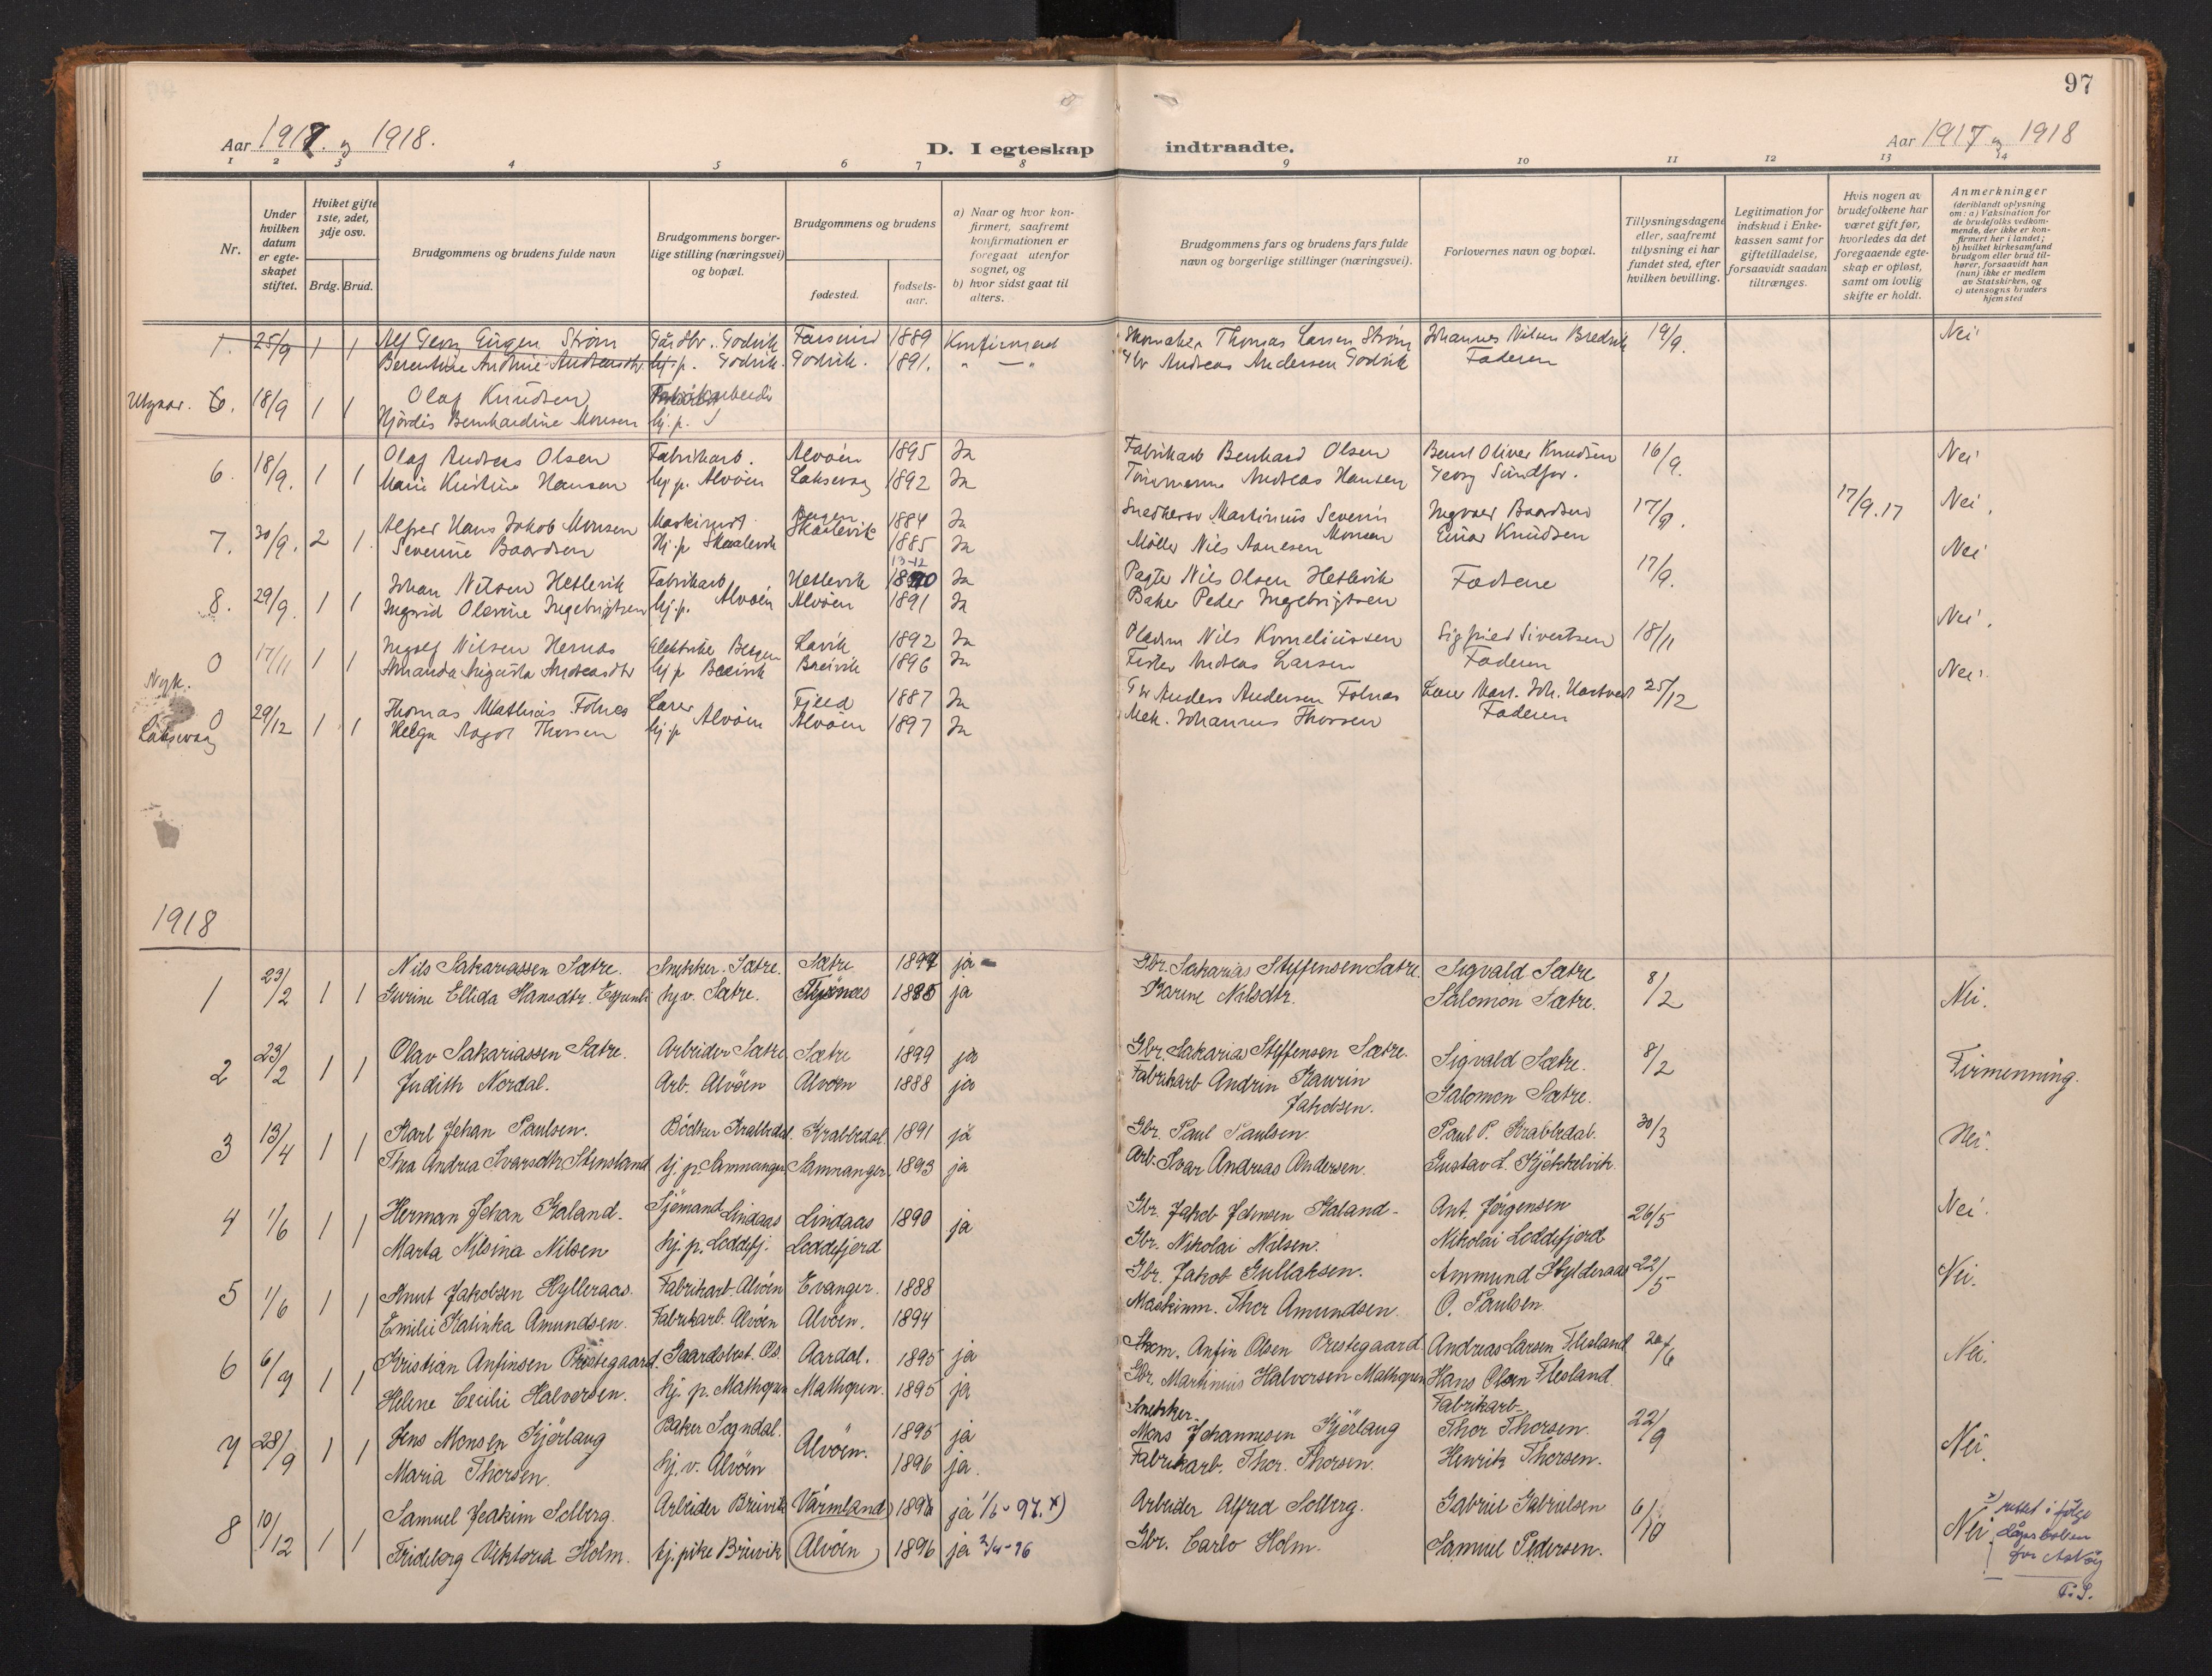 97
Aar 1917. og 1918.
D. I egteskap indtraadte.
Aar 1917 og 1918
1 2 3 4 5 6 7 8 9 10 11 12 13 14
Nr.
Under hvilken datum er egteskapet stiftet.
Hviket gifte 1ste, 2det, 3dje osv.
Brdg. Brud.
Brudgommens og brudens fulde navn
Brudgommens borgerlige stilling (næringsvei) og bopæl.
Brudgommens og brudens
fødested.
fødselsaar.
a) Naar og hvor konfirmert, saafremt konfirmationen er foregaat utenfor sognet, og
b) hvor sidst gaat til alters.
Brudgommens fars og brudens fars fulde navn og borgerlige stillinger (næringsvei).
Forlovernes navn og bopæl.
Tillysningsdagene eller, saafremt tillysning ei har fundet sted, efter hvilken bevilling.
Legitimation for indskud i Enkekassen samt for giftetilladelse, forsaavidt saadan tiltrænges.
Hvis nogen av brudefolkene har været gift før, hvorledes da det foregaaende egteskap er opløst, samt om lovlig skifte er holdt.
Anmerkninger (deriblandt oplysning om: a) Vaksination for de brudefolks vedkommende, der ikke er konfirmert her i landet; b) hvilket kirkesamfund brudgom eller brud tilhører, forsaavidt han (hun) ikke er medlem av Statskirken, og c) utensogns bruders hjemsted
1. 25/9 1 1 Alf Georg Eugen Strøm Gårdbr. Godvik Farsund 1889 Konfirmerd Skomaker Thomas Larsen Strøm Johannes Nilsen Bredvik 19/9. Nei
Berentine Andrine Andreasdtr hj. p. Godvik. Godvik. 1891. " — " Gbr Andreas Andersen Godvik Faderen
Utgaar. 6. 18/9 1 1 Olaf Knudsen Fabrikarbeider
Hjördis Bernhardine Monsen hj. p.
6. 18/9. 1 1 Olaf Andreas Olsen Fabrikarb. Alvöen 1895 Ja Fabrikarb Bernhard Olsen Bernt Oliver Knudsen 16/9. Nei
Marie Kristine Hansen hj. p. Alvöen Laksevag 1892 Ja Tömmerm Andreas Hansen Georg Sundfor.
7. 30/9. 2 1. Alfred Hans Jakob Monsen Maskinist Bergen 1884 Ja Snedkersv Martinius Severin Monsen Ingvar Baardsen 17/9. 17/9.17 Nei.
Severine Baardsen Hj. p Skaalevik Skaalevik 1885 Ja Möller Nils Aanesen Einar Knudsen
8. 29/9. 1 1 Johan Nilsen Hetlevik Fabrikarb. Hetlevik 13-12 1890 Ja Pagter Nils Olsen Hetlevik Fædrene 17/9. Nei
Ingrid Olavine Ingebrigtsen hj. p. Alvöen Alvöen 1891 Ja Baker Peder Ingebrigtsen
0 17/11 1 1 Ingolf Nilsen Hernas Elektriker Bergen Lavik 1892 Ja Nils Korneliussen Sigfried Sivertsen 18/11 Nei.
Amanda Augusta Andreasdtr hj p Breivik Breivik 1896 Ja Fisker Andreas Larsen Faderen
Nyk. Laksevaag 0 29/12 1 1 Thomas Mathias Folnes Lærer Fjeld 1887 Ja Gbr Anders Andersen Folnas Lærer Mart. Joh. Hartved 25/12 Nei.
Helga Aagot Thorsen hj. p Alvöen Alvöen 1897 Ja Mek. Johannes Thorsen Faderen
1918
1 23/2 1 1 Nils Sakariassen Sætre. Snekker. Sætre. Sætre 1897 ja Gbr. Sakarias Steffensen Sætre. Sigvald Sætre 8/2 Nei.
Gurine Ellida Hansdtr. Espenli hj. v. Sætre. 1885 ja Karine Nilsdtr. Salomon Sætre.
2 23/2 1 1 Olav Sakariassen Sætre. Arbeider Sætre. Sætre 1899 ja Gbr. Sakarias Steffensen Sætre. Sigvald Sætre. 8/2 Firmenning.
Judith Nordal. Arb. Alvöen Alvöen 1888 ja Fabrikarb Andrin Kaurin Jakobsen. Salomon Sætre.
3 13/4 1 1 Karl Johan Paulsen. Bödker Krabbedal. Krabbedal. 1891 ja Gbr. Paul Paulsen. Paul P. Krabbedal. 30/3 Nei
Thea Andrea Ivarsdtr. Stensland tj. p. Samnanger Samnanger. 1893 ja Arb. Ivar Andreas Andersen. Gustav L. Kjökkelvik.
4 1/6 1 1 Herman Johan Kaland. Sjömand Lindaas Lindaas 1890 ja Gbr. Jakob Johnsen Kaland - Ant. Jörgensen 26/5 Nei.
Marta Nilsina Nilsen hj. p. Loddefj. Loddefjord Gbr. Nikolai Nilsen. Nikolai Loddefjord
5 1/6 1 1 Knut Jakobsen Hylleraas. Fabrikarb. Alvöen Evanger. 1888 Gbr. Jakob Gullaksen. Ammund Hylderaas 22/5 Nei.
Emilie Katinka Amundsen. Fabrikarb. Alvöen Alvöen. 1894 Maskinm. Thor Amundsen. O. Paulsen.
6 6/9 1 1 Kristian Anfinsen Prestegaard. Gaardsbest. Os. Aardal. 1895 ja Skom. Anfin Olsen Prestegaard Andreas Larsen Flesland 20/6 Nei.
Heline Cecilie Halvorsen. hj. p. Mathopen Mathopen. 1895 ja Gbr. Martinius Halvorsen Mathopen Hans Olsen Flesland.
7 28/9 1 1 Jens Monsen Kjörlaug Baker Sogndal. Alvöen. 1895 ja Snekker Mons Johannesen Kjörlaug Fabrikarb. Thor Thorsen. 22/9 Nei.
Maria Thorsen. hj. v. Alvöen 1896 ja. Fabrikarb. Thor. Thorsen. Henrik Thorsen.
8 10/12 1 1 Samuel Joakim Solberg. Arbeider Breivik Värmland 189 ja 1/6 - 97. x) Arbeider Alfred Solberg. Gabriel Gabrielsen 6/10 Nei.
Frideborg Viktoria Holm. tj. pike Breivik Alvöen 1896 ja 2/4 - 96 Gbr. Carlo Holm. Samuel Pedersen.
x) rettet i følge
for Askøy
T. S.